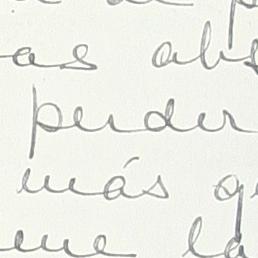 as abs
perder
más q
eue la